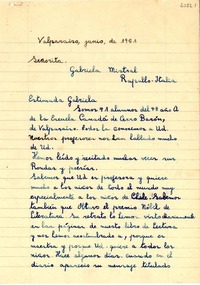 Valparaíso, junio, de 1951
Señorita
Gabriela Mistral
Rapallo-Italia
Estimada Gabriela
Somos 41 alumnos del 4º año A
de la Escuela Canadá de Cerro Barón,
de Valparaíso. Todos la conocemos a Ud.
Nuestros profesores nos han hablado mucho
de Ud.
Hemos leído y recitado muchas veces sus
Rondas y poesías.
Sabemos que Ud es profesora y quiere
mucho a los niños de todo el mundo muy
especialmente a los niños de Chile. Sabemos
también que Obtuvo el premio Nóbel de
Literatura. Su retrato lo hemos visto
en las páginas de nuestro libro de lectura
y nos hemos acostumbrado a, porque es
nuestra y porque Ud. quiere a todos los
niños. Hace algunos días, cuando en el
diario apareció su mensaje titulado